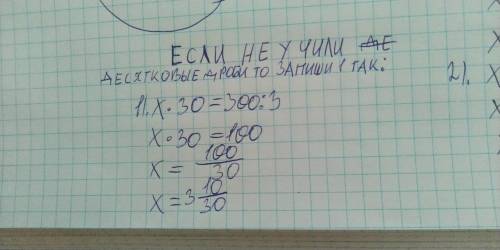 ЕСЛИ НЕ УЧИЛИ ДЕ
ДЕСЯТКОВЫЕ ДРОБИ ТО ЗАПИШИ 1 ТАК:
1). X·30=300:3
X·30=100
X= 100/30
X=3 10/30
2).